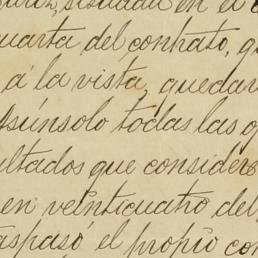 situada en el
cuarta del contrato, q
á la vista, quedar
Asúnsolo todas las o
ultados que considere
en veinticuatro del
aspasó el propio con